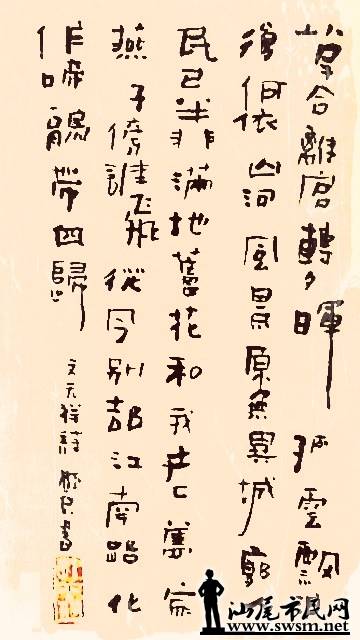 草合離宮轉夕暉孤雲飄
復何依山河風景原無異城郭
民已半非滿地蘆花和我老舊家
燕子傍誰飛從今別卻江南路化
作啼鵑帶血歸
文天祥詩 民書
汕尾市民网
www.swsm.net